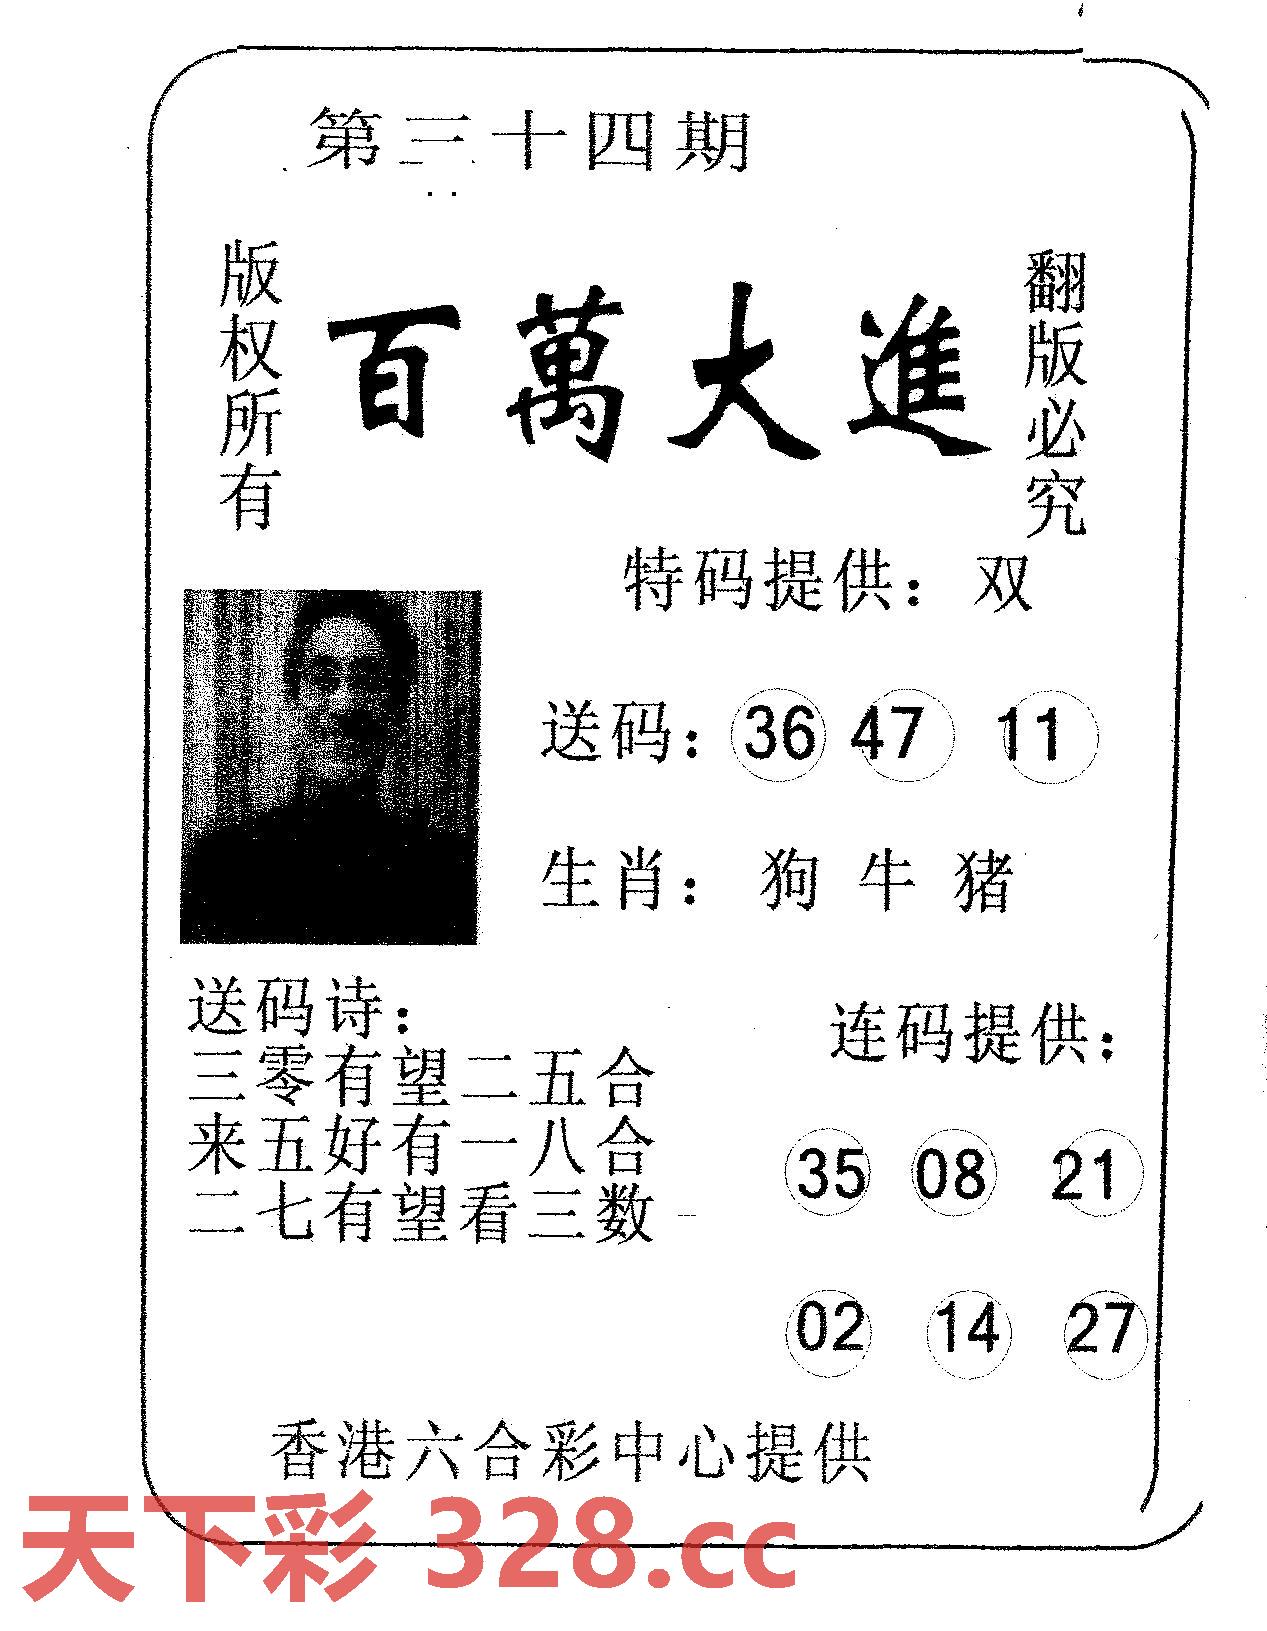 第三十四期
版权所有
百萬大進
翻版必究
特码提供：双
送码：36 47 11
生肖：狗 牛 猪
送码诗：
三零有望二五合
来五好有一八合
二七有望看三数
连码提供：
35 08 21
02 14 27
香港六合彩中心提供
天下彩 328.cc